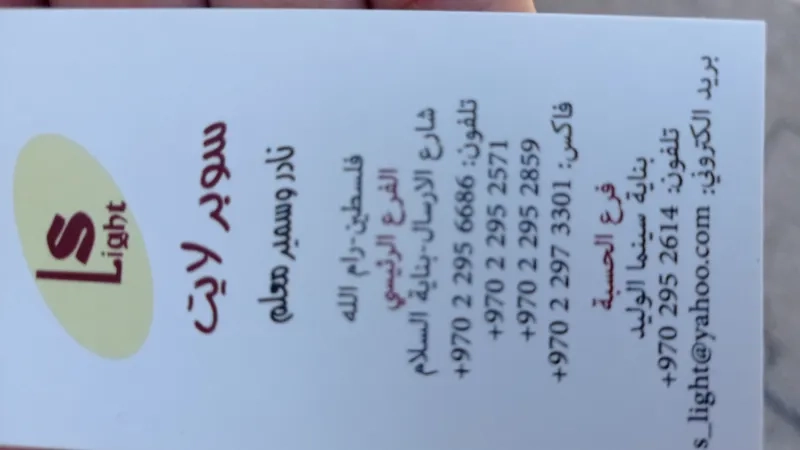 Ls
Light
سوبر لايت
نادر وسمير معلم
فلسطين-رام الله
الفرع الرئيسي
شارع الارسال-بناية السلام
تلفون: 6686 295 2 970+
+970 2 295 2571
+970 2 295 2859
فاكس: 3301 297 2 970+
فرع الحسبة
بناية سينما الوليد
تلفون: 2614 295 970+
بريد الكتروني: s_light@yahoo.com